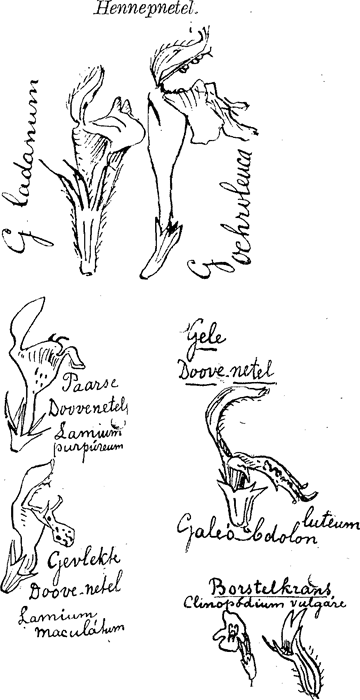 Hennepnetel.
G ladanum
G ochroleuca
Paarse
Doovenetel
Lamium
purpúreum
Gele
Doove-netel
Galeóbdolon luteum
Gevlekte
Doove-netel
Lamium
maculátum
Borstelkrans
Clinopódium vulgáre